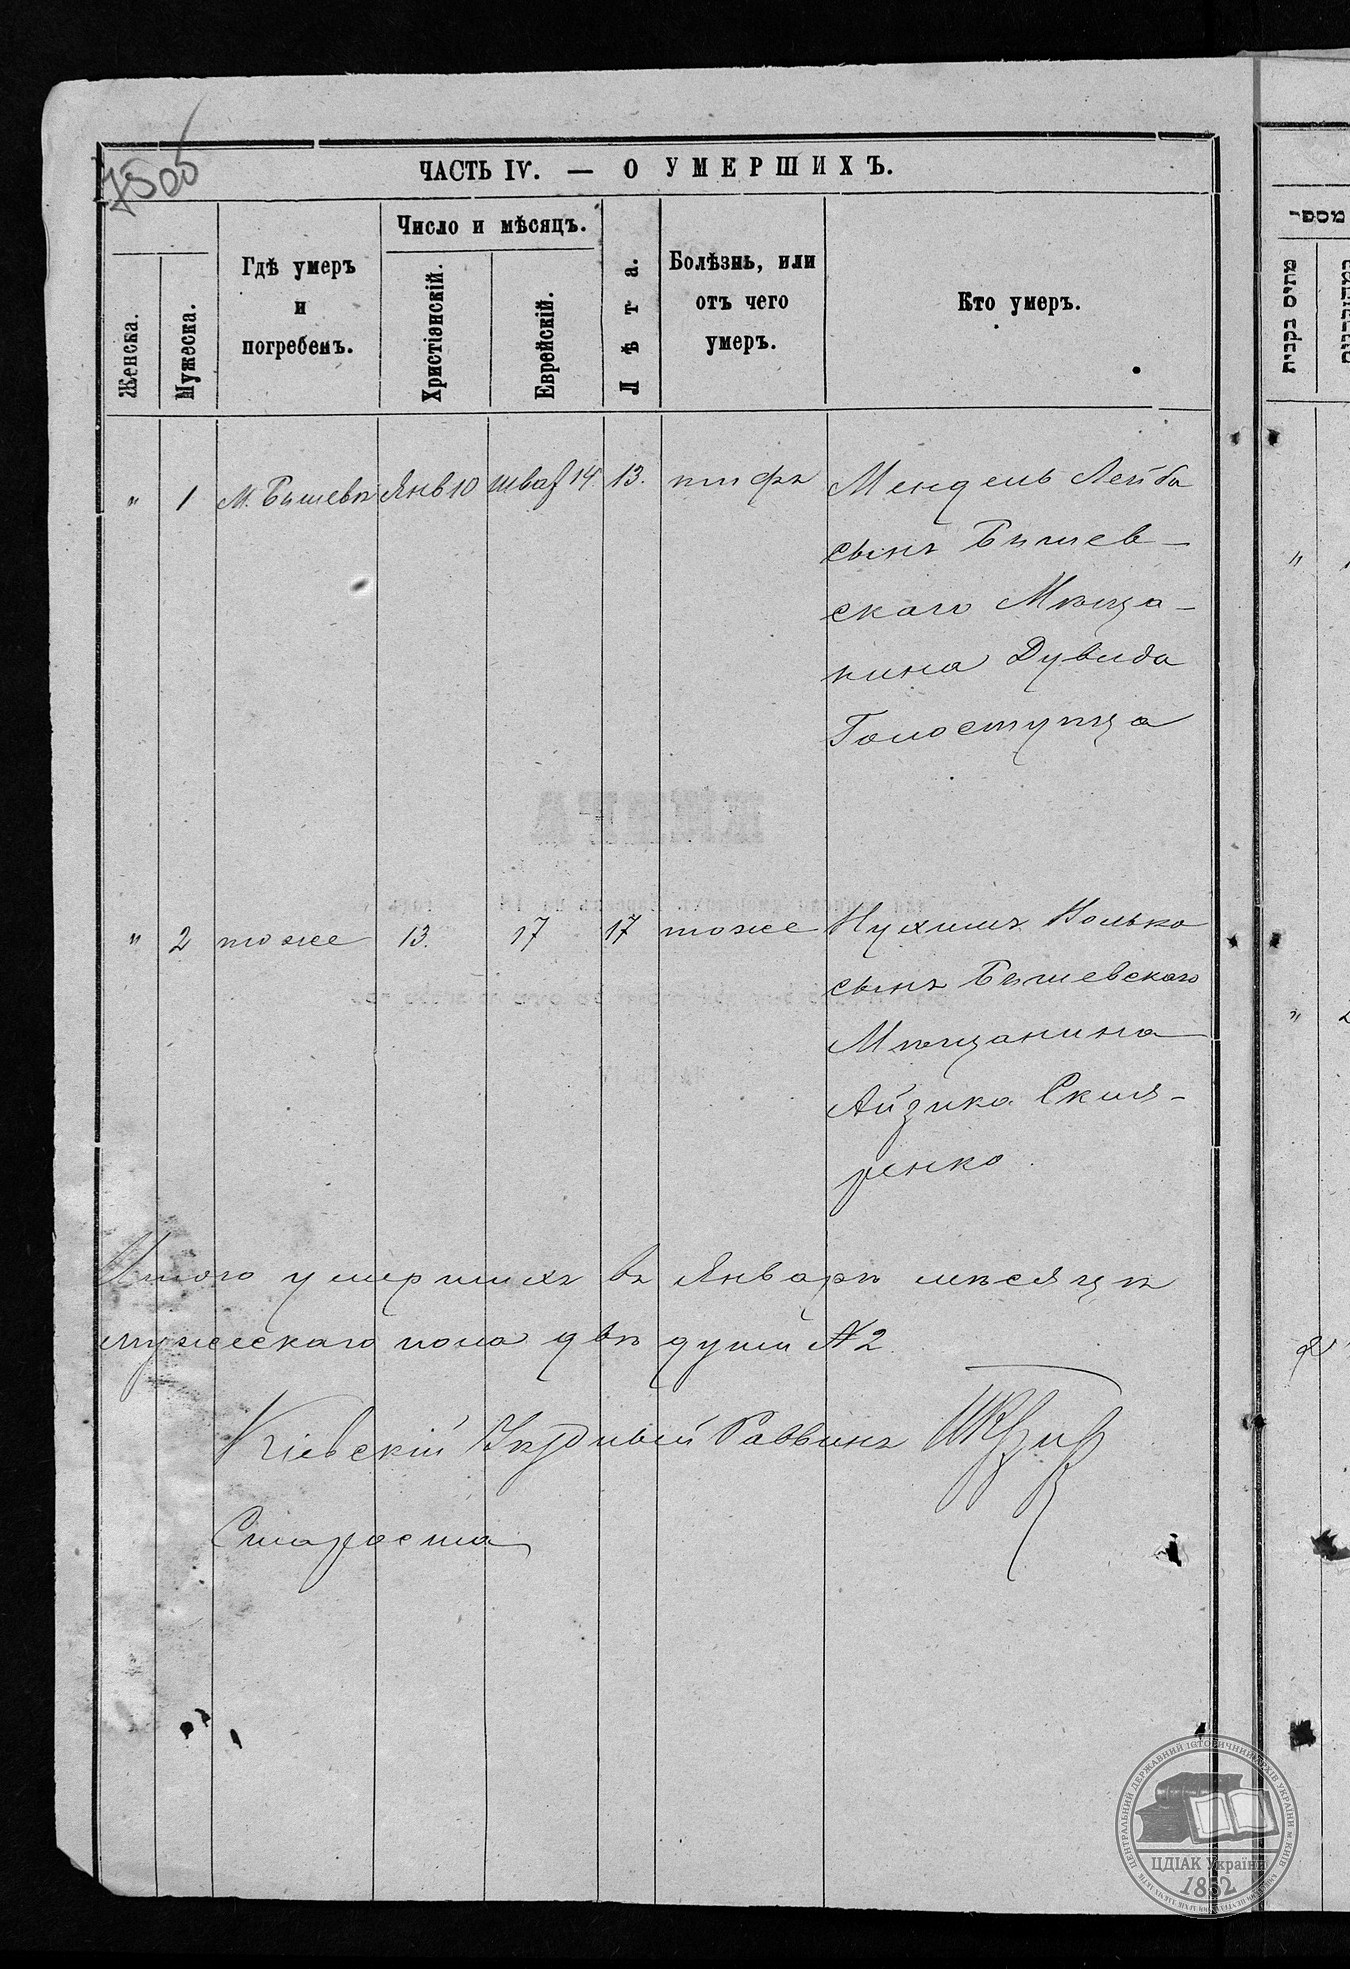 750об
ЧАСТЬ IV. — О УМЕРШИХЪ.
Женска.
Мужеска.
Гдѣ умеръ
и
погребенъ.
Число и мѣсяцъ.
Христіянскій.
Еврейскій.
Лѣта.
Болѣзнь, или
отъ чего
умеръ.
Кто умеръ.
" 1 М. Бышевъ Янв 10 шват 14. 13. тифъ Мендель Лейба
сынъ Бышев-
скаго Мѣща-
нина Дувида
Голоступца
" 2 тоже 13. 17 17 тоже Нухимъ Волько
сынъ Бышевскаго
Мѣщанина
Айзика Скля-
ренко.
Итого умершихъ въ Январѣ мѣсяцѣ
мужескаго пола двѣ души № 2
Кіевскій Уѣздный Раввинъ
Староста
מספר
מתים בקבית
"
"
2
ЦЕНТРАЛЬНИЙ ДЕРЖАВНИЙ ІСТОРИЧНИЙ АРХІВ УКРАЇНИ м.КИЇВ
ЦДІАК України
1852